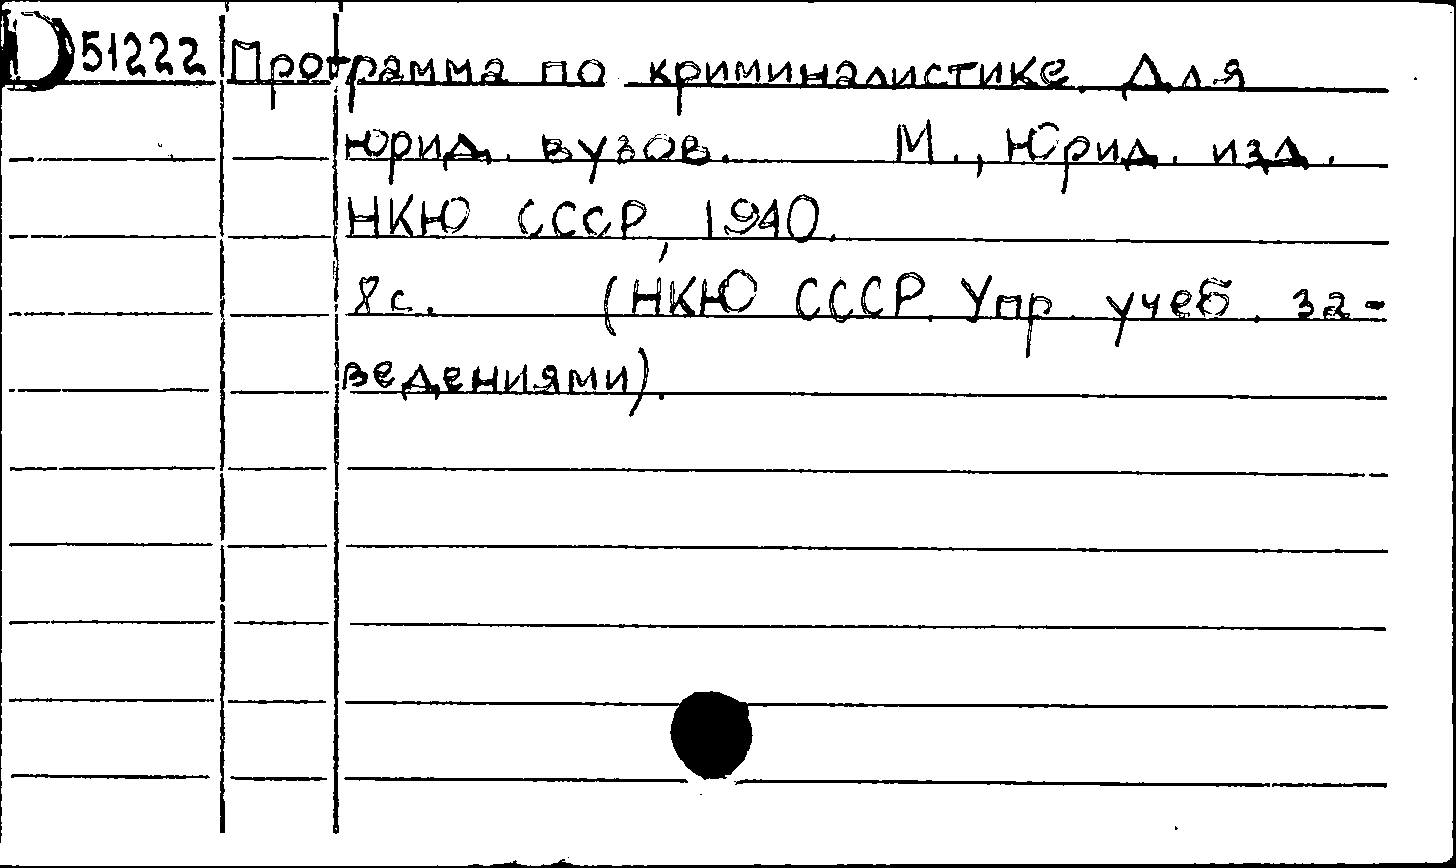 D 51222 Программа по криминалистике. Для
юрид. вузов. М., Юрид. изд.
НКЮ СССР, 1940.
8 с. (НКЮ СССР. Упр. учеб. за-
ведениями).